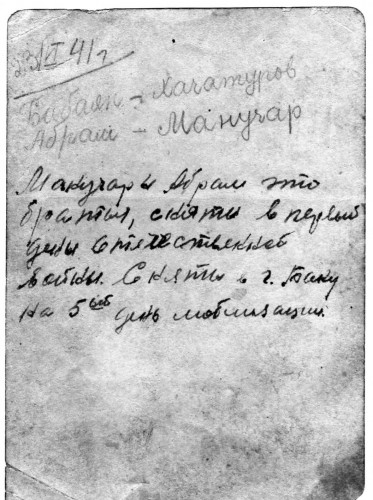 23/VI 41 г
Бабаян - Хачатуров
Абрам - Манучар
Манучар и Абрам это
братья, сняты в первый
день Отечественной
войны. Сняты в г. Баку
на 5ый день мобилизации.